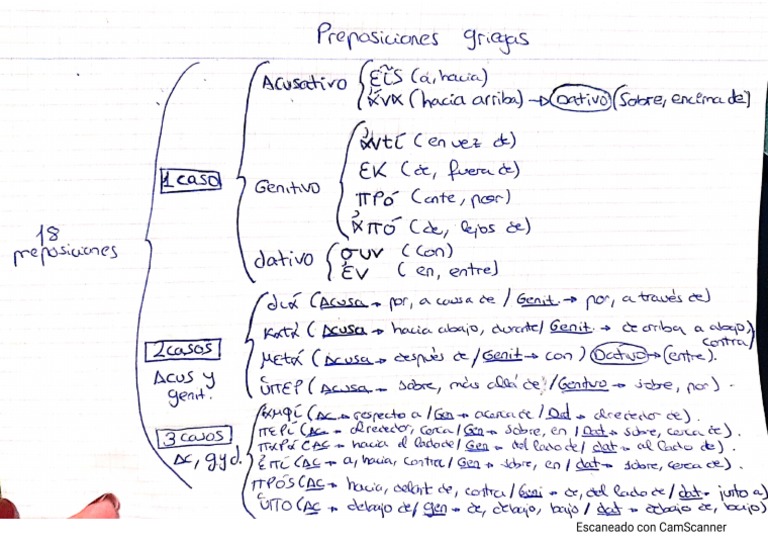 Preposiciones griegas
18 preposiciones
1 caso
Acusativo
εἰς (a, hacia)
ἀνα (hacia arriba) → Dativo (sobre, encima de)
Genitivo
ἀντί (en vez de)
ἐκ (de, fuera de)
πρό (ante, por)
ἀπό (de, lejos de)
dativo
συν (con)
ἐν (en, entre)
2 casos
Acus y genit.
διά (Acusa → por, a causa de / Genit. → por, a través de)
κατά (Acusa → hacia abajo, durante / Genit. → de arriba a abajo, contra)
μετά (Acusa → después de / Genit → con) Dativo → (entre).
ὑπέρ (Acusa → sobre, más allá de / Genitivo → sobre, por).
3 casos
Ac, g y d.
ἀμφί (Ac → respecto a / Gen → acerca de / Dat → alrededor de).
περί (Ac → alrededor, cerca / Gen → sobre, en / Dat → sobre, cerca de).
παρά (Ac → hacia el lado de / Gen → del lado de / dat → al lado de).
ἐπί (Ac → a, hacia, contra / Gen → sobre, en / dat → sobre, cerca de).
πρός (Ac → hacia, delant de, contra / Geni → de, del lado de / dat → junto a)
ὑπο (Ac → debajo de / gen → de, debajo, bajo / dat → debajo de, bajo)
Escaneado con CamScanner